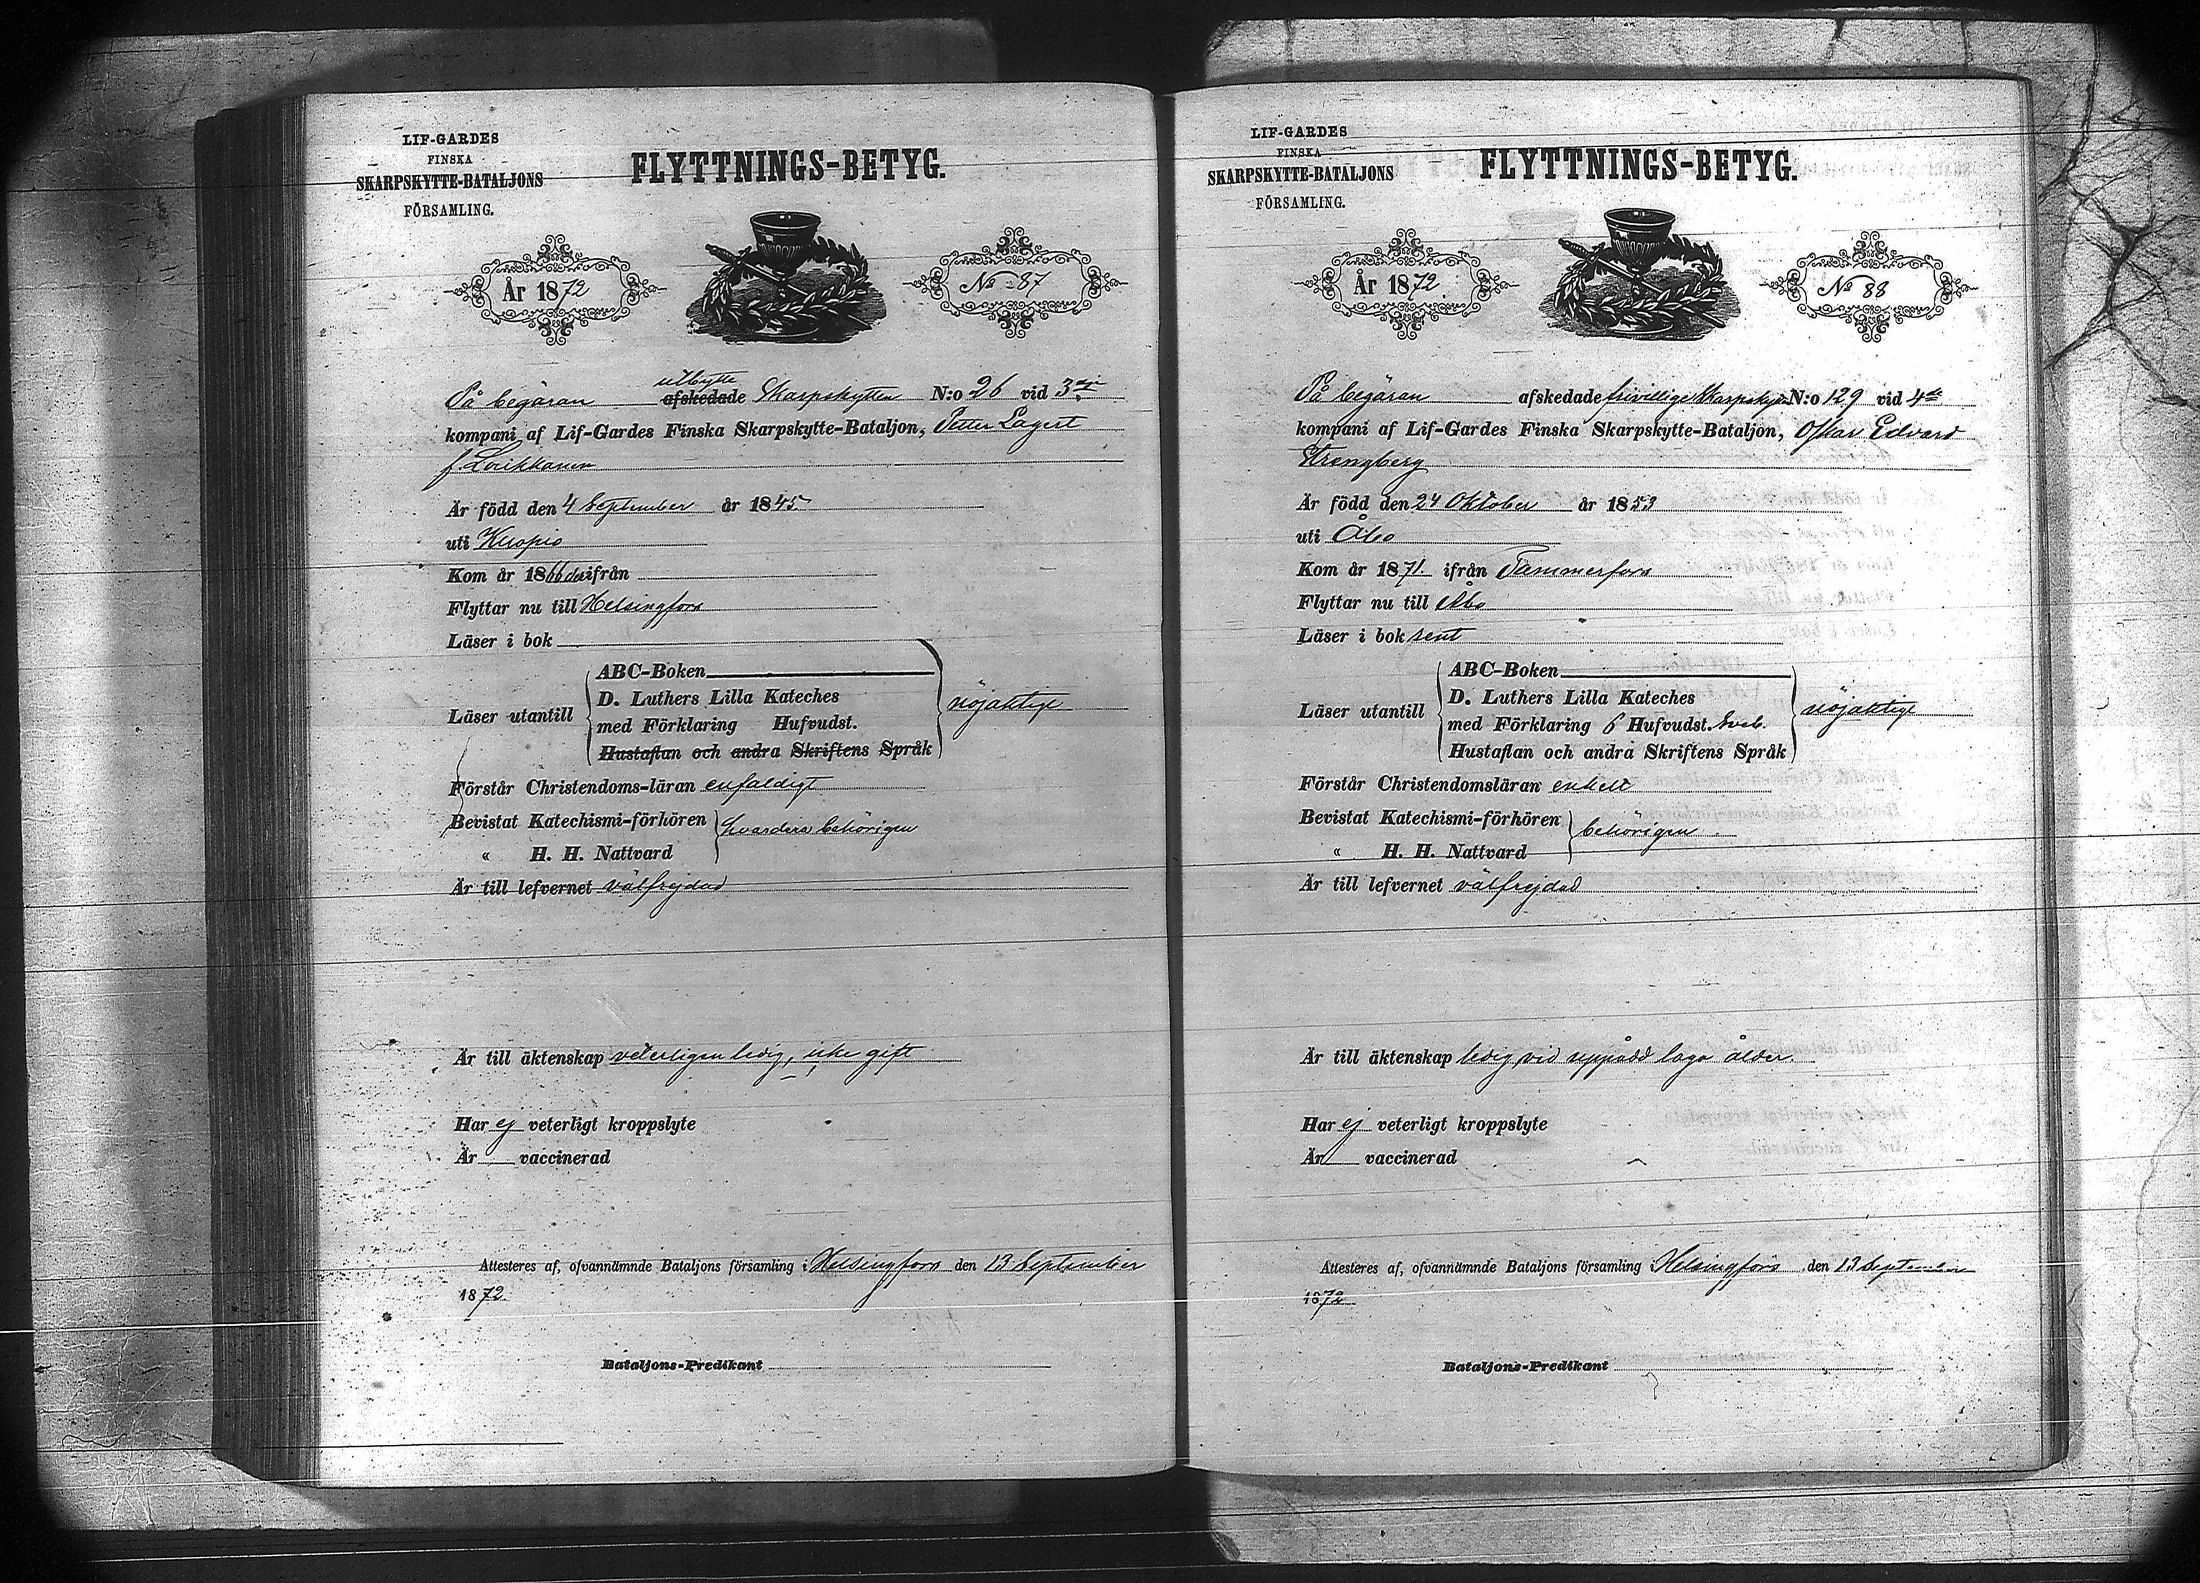 LIF-GARDES
FINSKA
SKARPSKYTTE-BATALJONS
FÖRSAMLING.
FLYTTNINGS-BETYG.
År 1872
No 87
På begäran utbytte afskedade Skarpskytten N:o 26 vid 3dje
kompani af Lif-Gardes Finska Skarpskytte-Bataljon, Petter Lagert
f. Loikkanen
Är född den 4 September år 1845
uti Kuopio
Kom år 1866 ifrån
Flyttar nu till Helsingfors
Läser i bok
Läser utantill
ABC-Boken
D. Luthers Lilla Kateches
med Förklaring Hufvudst.
Hustaflan och andra Skriftens Språk
nöjaktige
Förstår Christendoms-läran enfaldigt
Bevistat Katechismi-förhören
« H. H. Nattvard
hvardera behörigen
Är till lefvernet välfrejdad
Är till äktenskap veterligen ledig, icke gift
Har ej veterligt kroppslyte
Är vaccinerad
Attesteras af, ofvannämnde Bataljons församling i Helsingfors den 13 September
1872
Bataljons-Predikant
LIF-GARDES
FINSKA
SKARPSKYTTE-BATALJONS
FÖRSAMLING.
FLYTTNINGS-BETYG.
År 1872
No 88
På begäran afskedade frivillige Skarpskytten N:o 129 vid 4de
kompani af Lif-Gardes Finska Skarpskytte-Bataljon, Oskar Edvard
Strengberg
Är född den 24 Oktober år 1853
uti Åbo
Kom år 1871 ifrån Tammerfors
Flyttar nu till Åbo
Läser i bok rent
Läser utantill
ABC-Boken
D. Luthers Lilla Kateches
med Förklaring 6 Hufvudst. Sveb.
Hustaflan och andra Skriftens Språk
nöjaktige
Förstår Christendomsläran enkelt
Bevistat Katechismi-förhören
« H. H. Nattvard
behörigen
Är till lefvernet välfrejdad
Är till äktenskap ledig vid uppnådd laga ålder.
Har ej veterligt kroppslyte
Är vaccinerad
Attesteras af, ofvannämnde Bataljons församling i Helsingfors den 13 September
1872
Bataljons-Predikant